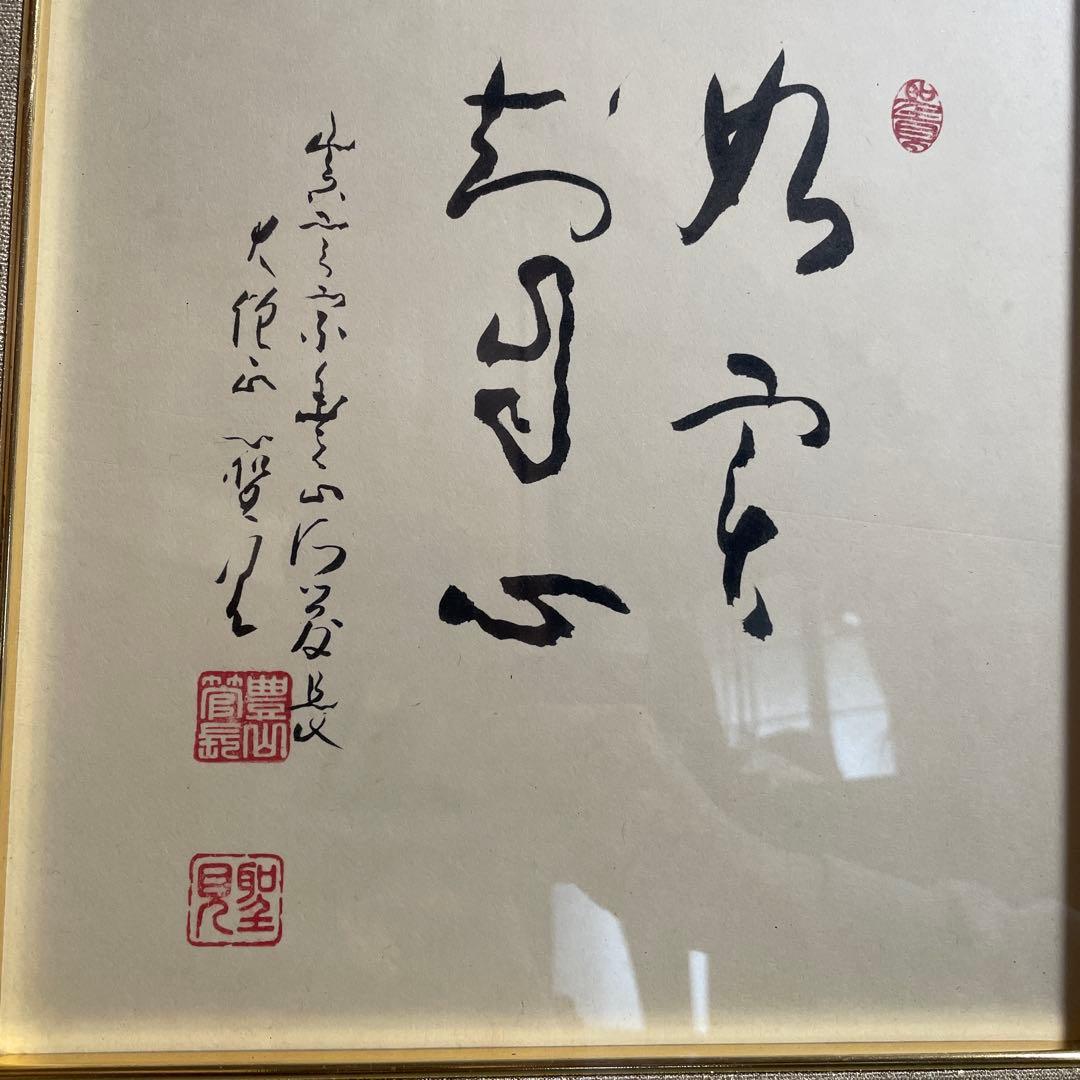 如実
知自心
真言宗豊山派管長
大僧正 聖見
豊山
管長
聖見